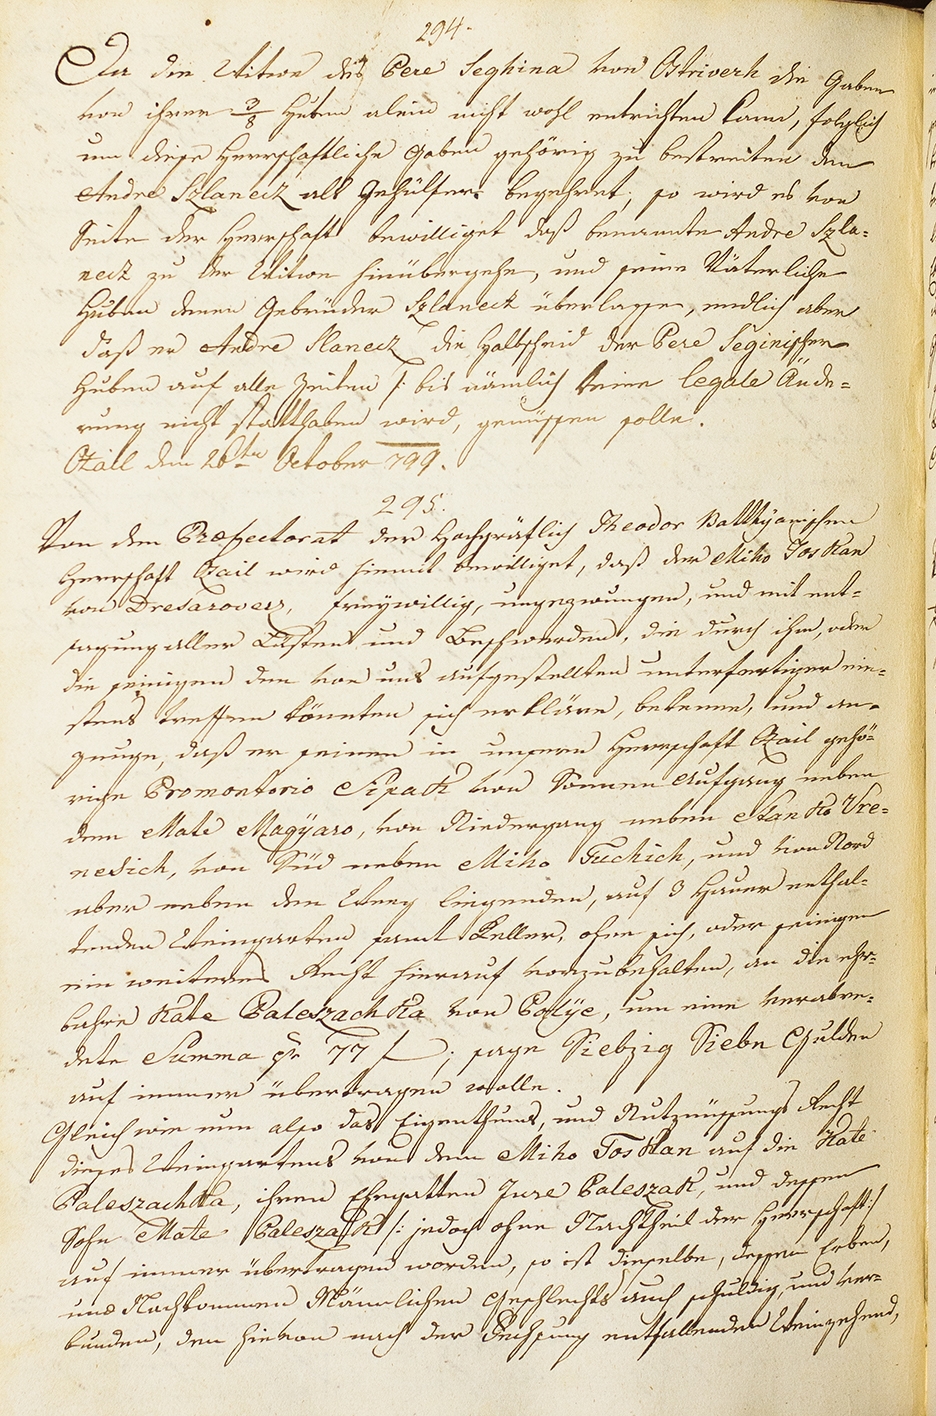 294.
Da die Witwe des Pere Seghina von Ostriverh die Gaben
von ihrer 3/8 Huben alein nicht wohl entrichten kann, folglich
um diese Herrschaftliche Gaben gehörig zu bestreiten den
Andre Szlanecz als Gehülfer begehret; so wird es von
Seite der Herrschaft bewilliget daß benannte Andre Szla=
necz zu der Witwe hinübergehe, und seine Väterliche
Huben denen Gebrüder Szlanecz überlasse, endlich aber
daß er Andre Slanecz die Halbscheid der Pere Seginischen
Huben auf alle Zeiten /: bis nämlich keine legale Ände=
rung nicht statthaben wird, genüssen solle.
Ozail den 26ten October 799.
295.
Von dem Præfectorat der Hochgräflich Theodor Batthyanischen
Herrschaft Ozail wird hiemit bewilliget, daß der Miho Toskan
von Dresarovecz, freywillig, ungezwungen, und mit ent=
sagung aller Listen und Beschwerden, die durch ihm, oder
die seinigen den von uns aufgestellten unterfertiger ein=
stens treffen könnten sich erkläre, bekenne, und an=
zeuge, daß er seinen in unsern Herrschaft Ozail gehö=
rige Promontorio Lipak von Sonnen Aufgang neben
dem Mate Magÿaro, von Niedergang neben Stanko Vre=
nesich, von Süd neben Miho Fuchich, und von Nord
aber neben den Weeg liegenden, auf 3 Hauer enthal=
tenden Weingarten samt Keller, ohne sich, oder seinigen
ein weiteres Recht hierauf vorzubehalten, an die ehr=
bahre Kate Paleszachka von Polÿe, um eine verabre=
dete Summa pr 77 f; sage Siebzig Siebn Gulden
auf immer übertragen wolle.
Gleich wie nun also das Eigenthums, und Nutznüssungs Recht
dieses Weingartens von dem Miho Toskan auf die Kate
Paleszachka, ihren Ehegatten Jure Paleszak, und dessen
Sohn Mate Paleszak /: jedoch ohne Nachtheil der Herrschaft :/
auf immer übertragen worden, so ist dieselbe, dessen Erben,
und Nachkommen Männlichen Geschlechts auch schuldig, und ver=
bunden, den hievon nach der Fechsung entfallenden Weinzehend,